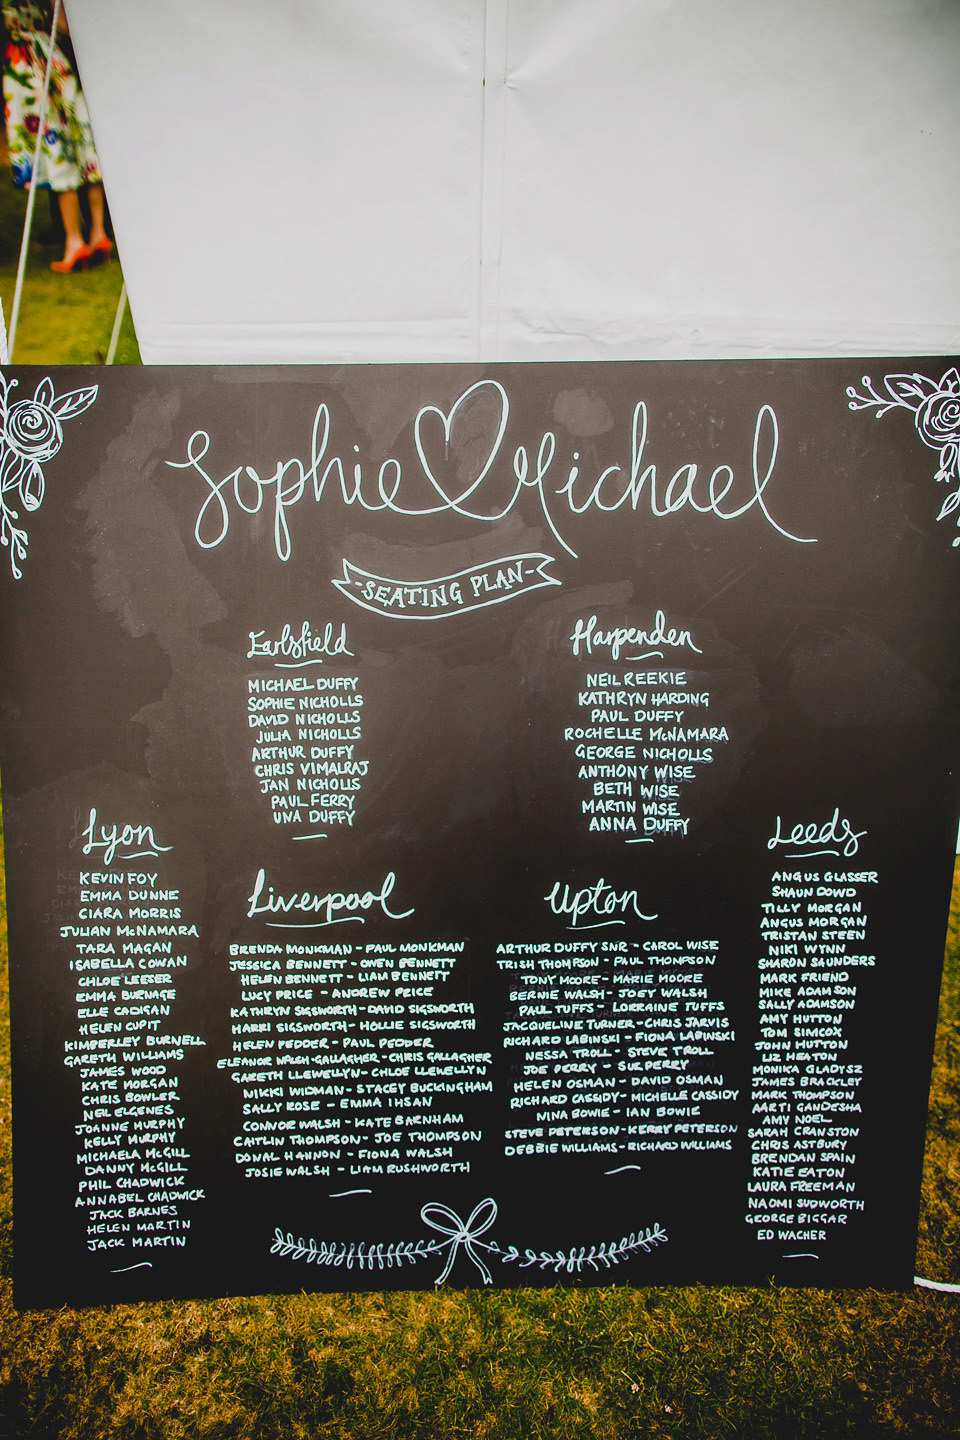 Sophie Michael
-SEATING PLAN-
Earlsfield
MICHAEL DUFFY
SOPHIE NICHOLLS
DAVID NICHOLLS
JULIA NICHOLLS
ARTHUR DUFFY
CHRIS VIMALRAJ
JAN NICHOLLS
PAUL FERRY
UNA DUFFY
Harpenden
NEIL REEKIE
KATHRYN HARDING
PAUL DUFFY
ROCHELLE McNAMARA
GEORGE NICHOLLS
ANTHONY WISE
BETH WISE
MARTIN WISE
ANNA DUFFY
Lyon
KEVIN FOY
EMMA DUNNE
CIARA MORRIS
JULIAN McNAMARA
TARA MAGAN
ISABELLA COWAN
CHLOE LEESER
EMMA BURNAGE
ELLE CADIGAN
HELEN CUPIT
KIMBERLEY BURNELL
GARETH WILLIAMS
JAMES WOOD
KATE MORGAN
CHRIS BOWLER
NEIL ELGENES
JOANNE MURPHY
KELLY MURPHY
MICHAELA McGILL
DANNY McGILL
PHIL CHADWICK
ANNABEL CHADWICK
JACK BARNES
HELEN MARTIN
JACK MARTIN
Liverpool
BRENDA MONKMAN - PAUL MONKMAN
JESSICA BENNETT - OWEN BENNETT
HELEN BENNETT - LIAM BENNETT
LUCY PRICE - ANDREW PRICE
KATHRYN SIGSWORTH - DAVID SIGSWORTH
HARRI SIGSWORTH - HOLLIE SIGSWORTH
HELEN PEDDER - PAUL PEDDER
ELEANOR WALSH-GALLAGHER - CHRIS GALLAGHER
GARETH LLEWELLYN - CHLOE LLEWELLYN
NIKKI WIDMAN - STACEY BUCKINGHAM
SALLY ROSE - EMMA IHSAN
CONNOR WALSH - KATE BARNHAM
CAITLIN THOMPSON - JOE THOMPSON
DONAL HANNON - FIONA WALSH
JOSIE WALSH - LIAM RUSHWORTH
Upton
ARTHUR DUFFY SNR - CAROL WISE
TRISH THOMPSON - PAUL THOMPSON
TONY MOORE - MARIE MOORE
BERNIE WALSH - JOEY WALSH
PAUL TUFFS - LORRAINE TUFFS
JACQUELINE TURNER - CHRIS JARVIS
RICHARD LABINSKI - FIONA LABINSKI
NESSA TROLL - STEVE TROLL
JOE PERRY - SUE PERRY
HELEN OSMAN - DAVID OSMAN
RICHARD CASSIDY - MICHELLE CASSIDY
NINA BOWIE - IAN BOWIE
STEVE PETERSON - KERRY PETERSON
DEBBIE WILLIAMS - RICHARD WILLIAMS
Leeds
ANGUS GLASSER
SHAUN DOWD
TILLY MORGAN
ANGUS MORGAN
TRISTAN STEEN
NIKI WYNN
SHARON SAUNDERS
MARK FRIEND
MIKE ADAMSON
SALLY ADAMSON
AMY HUTTON
TOM SIMCOX
JOHN HUTTON
LIZ HEATON
MONIKA GLADYSZ
JAMES BRACKLEY
MARK THOMPSON
AARTI GANDESHA
AMY NOEL
SARAH CRANSTON
CHRIS ASTBURY
BRENDAN SPAIN
KATIE EATON
LAURA FREEMAN
NAOMI SUDWORTH
GEORGE BIGGAR
ED WACHER